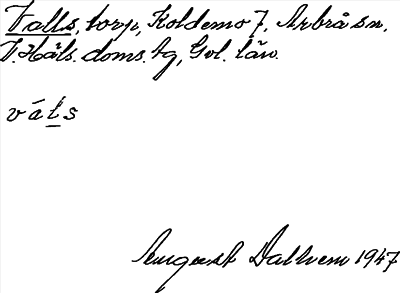 Valls, torp, Koldemo 7, Arbrå sn,
V. Häls. doms. tg, Gvl. län.
váts
August Dallvem 1947